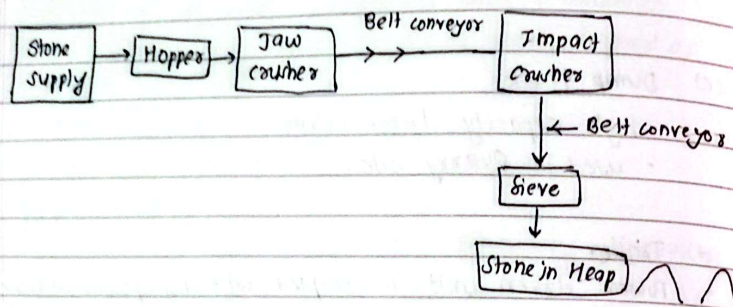 Stone supply
Hopper
Jaw crusher
Belt conveyor
Impact crusher
Belt conveyor
Sieve
Stone in Heap